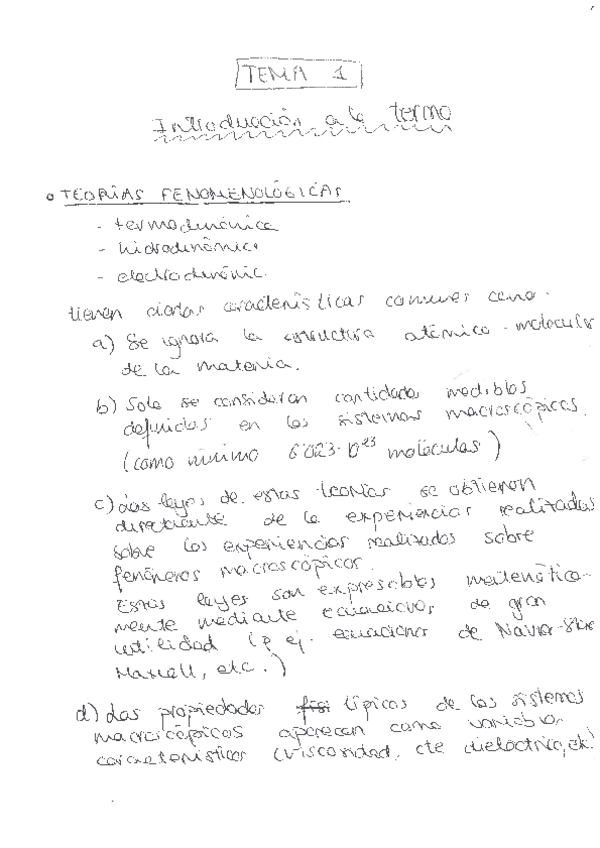 TEMA 1
Introducción a la termo
• TEORÍAS FENOMENOLÓGICAS
- termodinámica
- hidrodinámica
- electrodinámic.
tienen ciertas características comunes como.
a) Se ignora la estructura atómico-molecular
de la materia.
b) Solo se consideran cantidades medibles
definidas en los sistemas macroscópicos.
(como mínimo 6'023·10²³ moléculas)
c) Las leyes de estas teorías se obtienen
directamente de la experiencias realizadas
sobre las experiencias realizados sobre
fenómenos macroscópicos.
Estas leyes son expresables matemática-
mente mediante ecuaciones de gran
utilidad (p ej. ecuaciones de Navier-Stoke
Maxell, etc.)
d) Las propiedades típicas de los sistemas
macroscópicos aparecen como variables
características (viscosidad, cte dieléctrica, etc.)